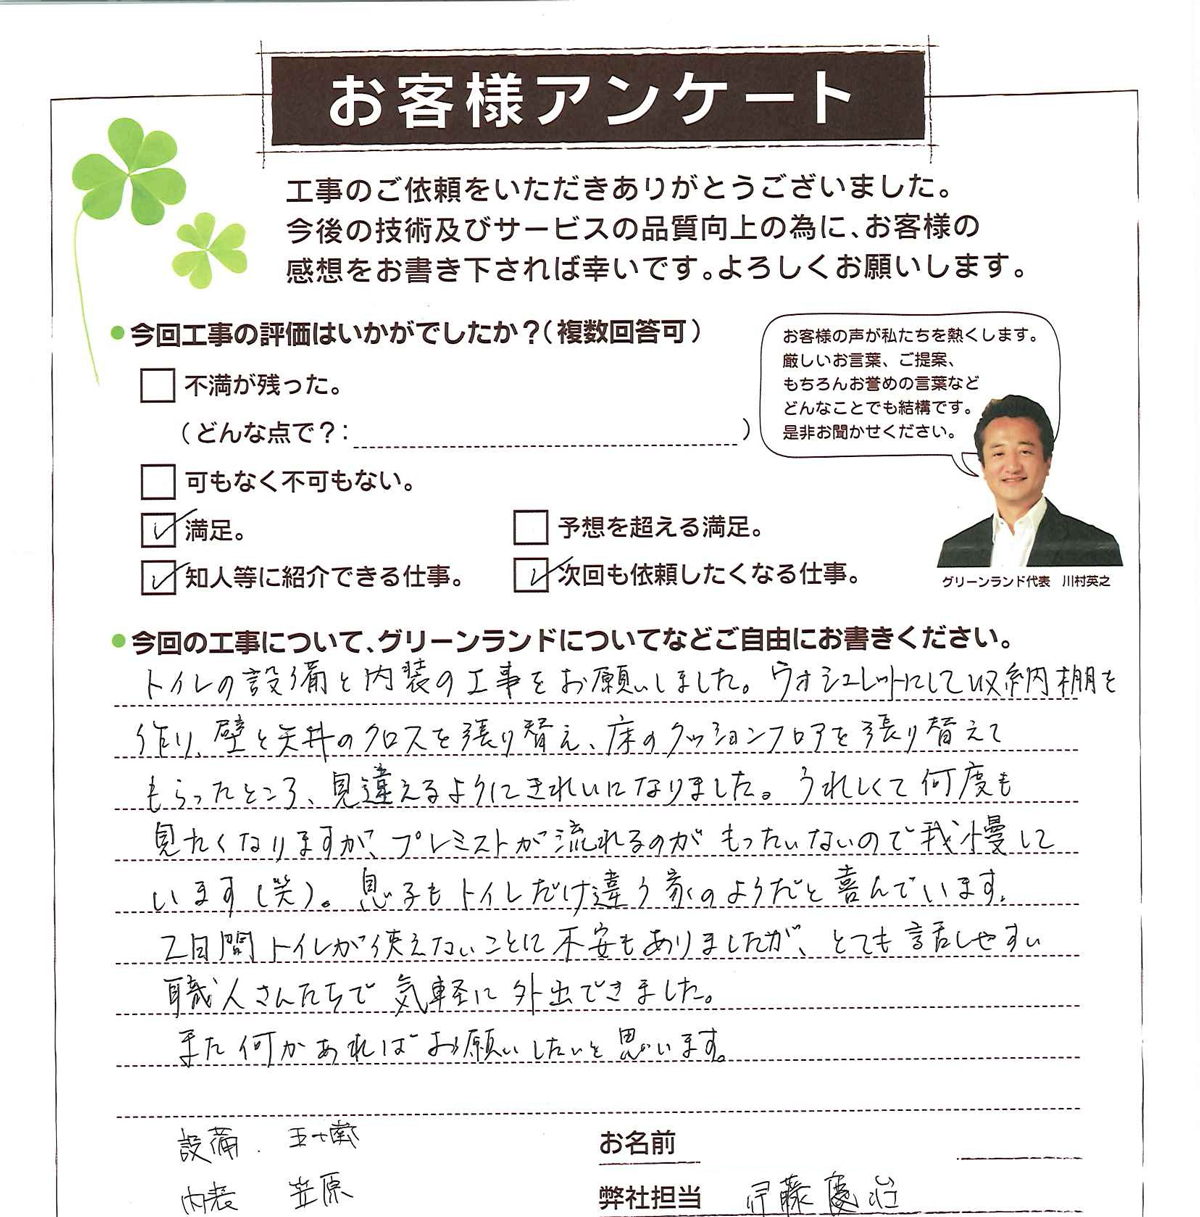 お客様アンケート
工事のご依頼をいただきありがとうございました。
今後の技術及びサービスの品質向上の為に、お客様の
感想をお書き下されば幸いです。よろしくお願いします。
今回工事の評価はいかがでしたか？（複数回答可）
お客様の声が私たちを熱くします。
厳しいお言葉、ご提案、
もちろんお誉めの言葉など
どんなことでも結構です。
是非お聞かせください。
不満が残った。
（どんな点で？： ）
可もなく不可もない。
満足。 予想を超える満足。
知人等に紹介できる仕事。 次回も依頼したくなる仕事。
グリーンランド代表 川村英之
今回の工事について、グリーンランドについてなどご自由にお書きください。
トイレの設備と内装の工事をお願いしました。ウオシュレットにして収納棚を
作り、壁と天井のクロスを張り替え、床のクッションフロアを張り替えて
もらったところ、見違えるようにきれいになりました。うれしくて何度も
見たくなりますが、プレミストが流れるのがもったいないので我慢して
います（笑）。息子もトイレだけ違う家のようだと喜んでいます。
2日間トイレが使えないことに不安もありましたが、とても話しやすい
職人さんたちで気軽に外出できました。
また何かあればお願いしたいと思います。
設備 五十嵐 お名前
内装 笠原 弊社担当 伊藤慶